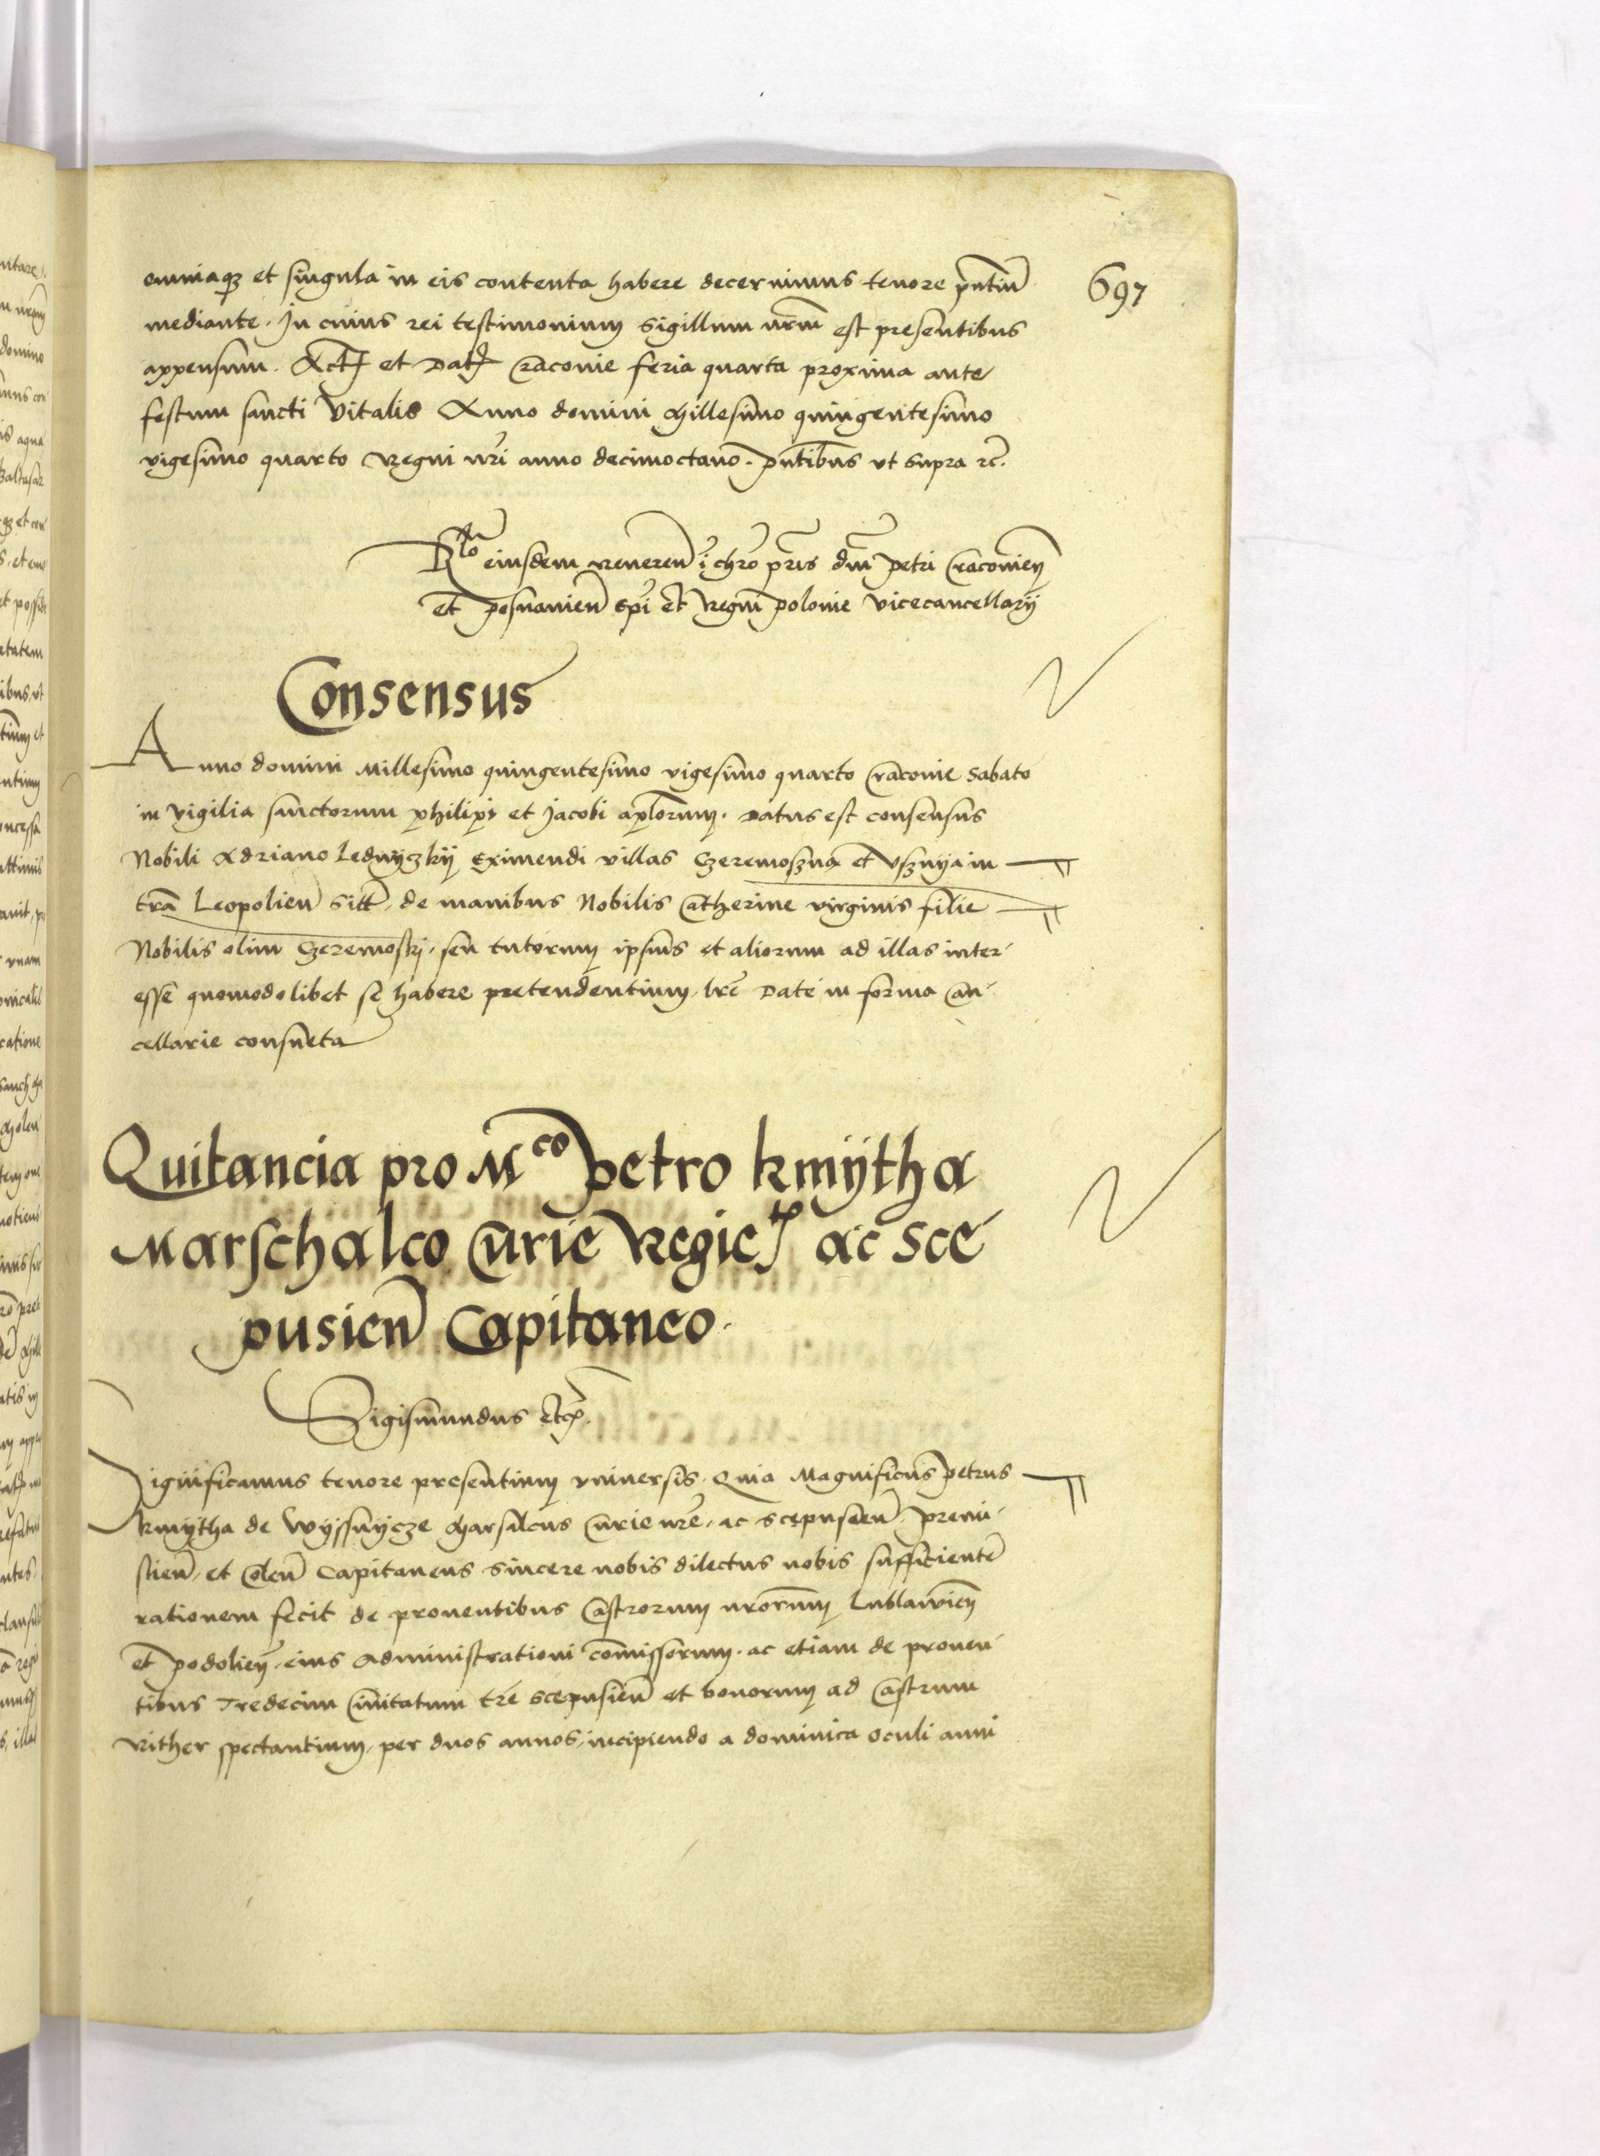 697
omniaqz et singula in eis contenta habere decernimus tenore pntium
mediante. In cuius rei testimonium sigillum nrm est presentibus
appensum. Act et Dat Cracovie feria quarta proxima ante
festum sancti Vitalis Anno domini Millesimo quingentesimo
vigesimo quarto Regni nri anno decimoctavo. pntibus vt supra rc.
Rlo eiusdem Reveren i chro pris dni petri Cracovien
et posnanien epi et Regni polonie vicecancellarij
Consensus
Anno domini Millesimo quingentesimo vigesimo quarto Cracovie Sabato
in vigilia sanctorum philippi et Jacobi aplorum. Datus est consensus
Nobili Adriano Lednyczkij Eximendi villas Czeremoszna et Vsznya in
tra Leopolien sitt. de manibus Nobilis Catherine virginis filie
Nobilis olim Czeremoskj. seu tutorum ipsius et aliorum ad illas inter
esse quomodolibet se habere pretendentium. lre Date in forma Can
cellarie consueta
Quitancia pro Mco petro kmÿtha
Marschalco Curie Regie ac sce
pusien Capitaneo.
Sigismundus etc.
Significamus tenore presentium vniversis. Quia Magnificus petrus
kmytha de Wyssnycze Marsalcus Curie nre. ac scepusien. premi
slien. et Colen Capitaneus sincere nobis dilectus nobis sufficiente
rationem fecit de proventibus Castrorum nrorum Lublovien
et podolien. eius administrationi comissorum. ac etiam de proven
tibus Tredecim Civitatum tre scepusien et bonorum ad Castrum
Rither spectantium. per duos annos. incipiendo a dominica Oculi anni